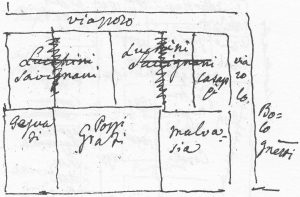 viazolo
Lucchini
Savignani
Lucchini
Savignani
Casap
via
zo
lo.
Bo=
lo
gnetti
Gesua
di
Poggi
Grati
malva=
sia